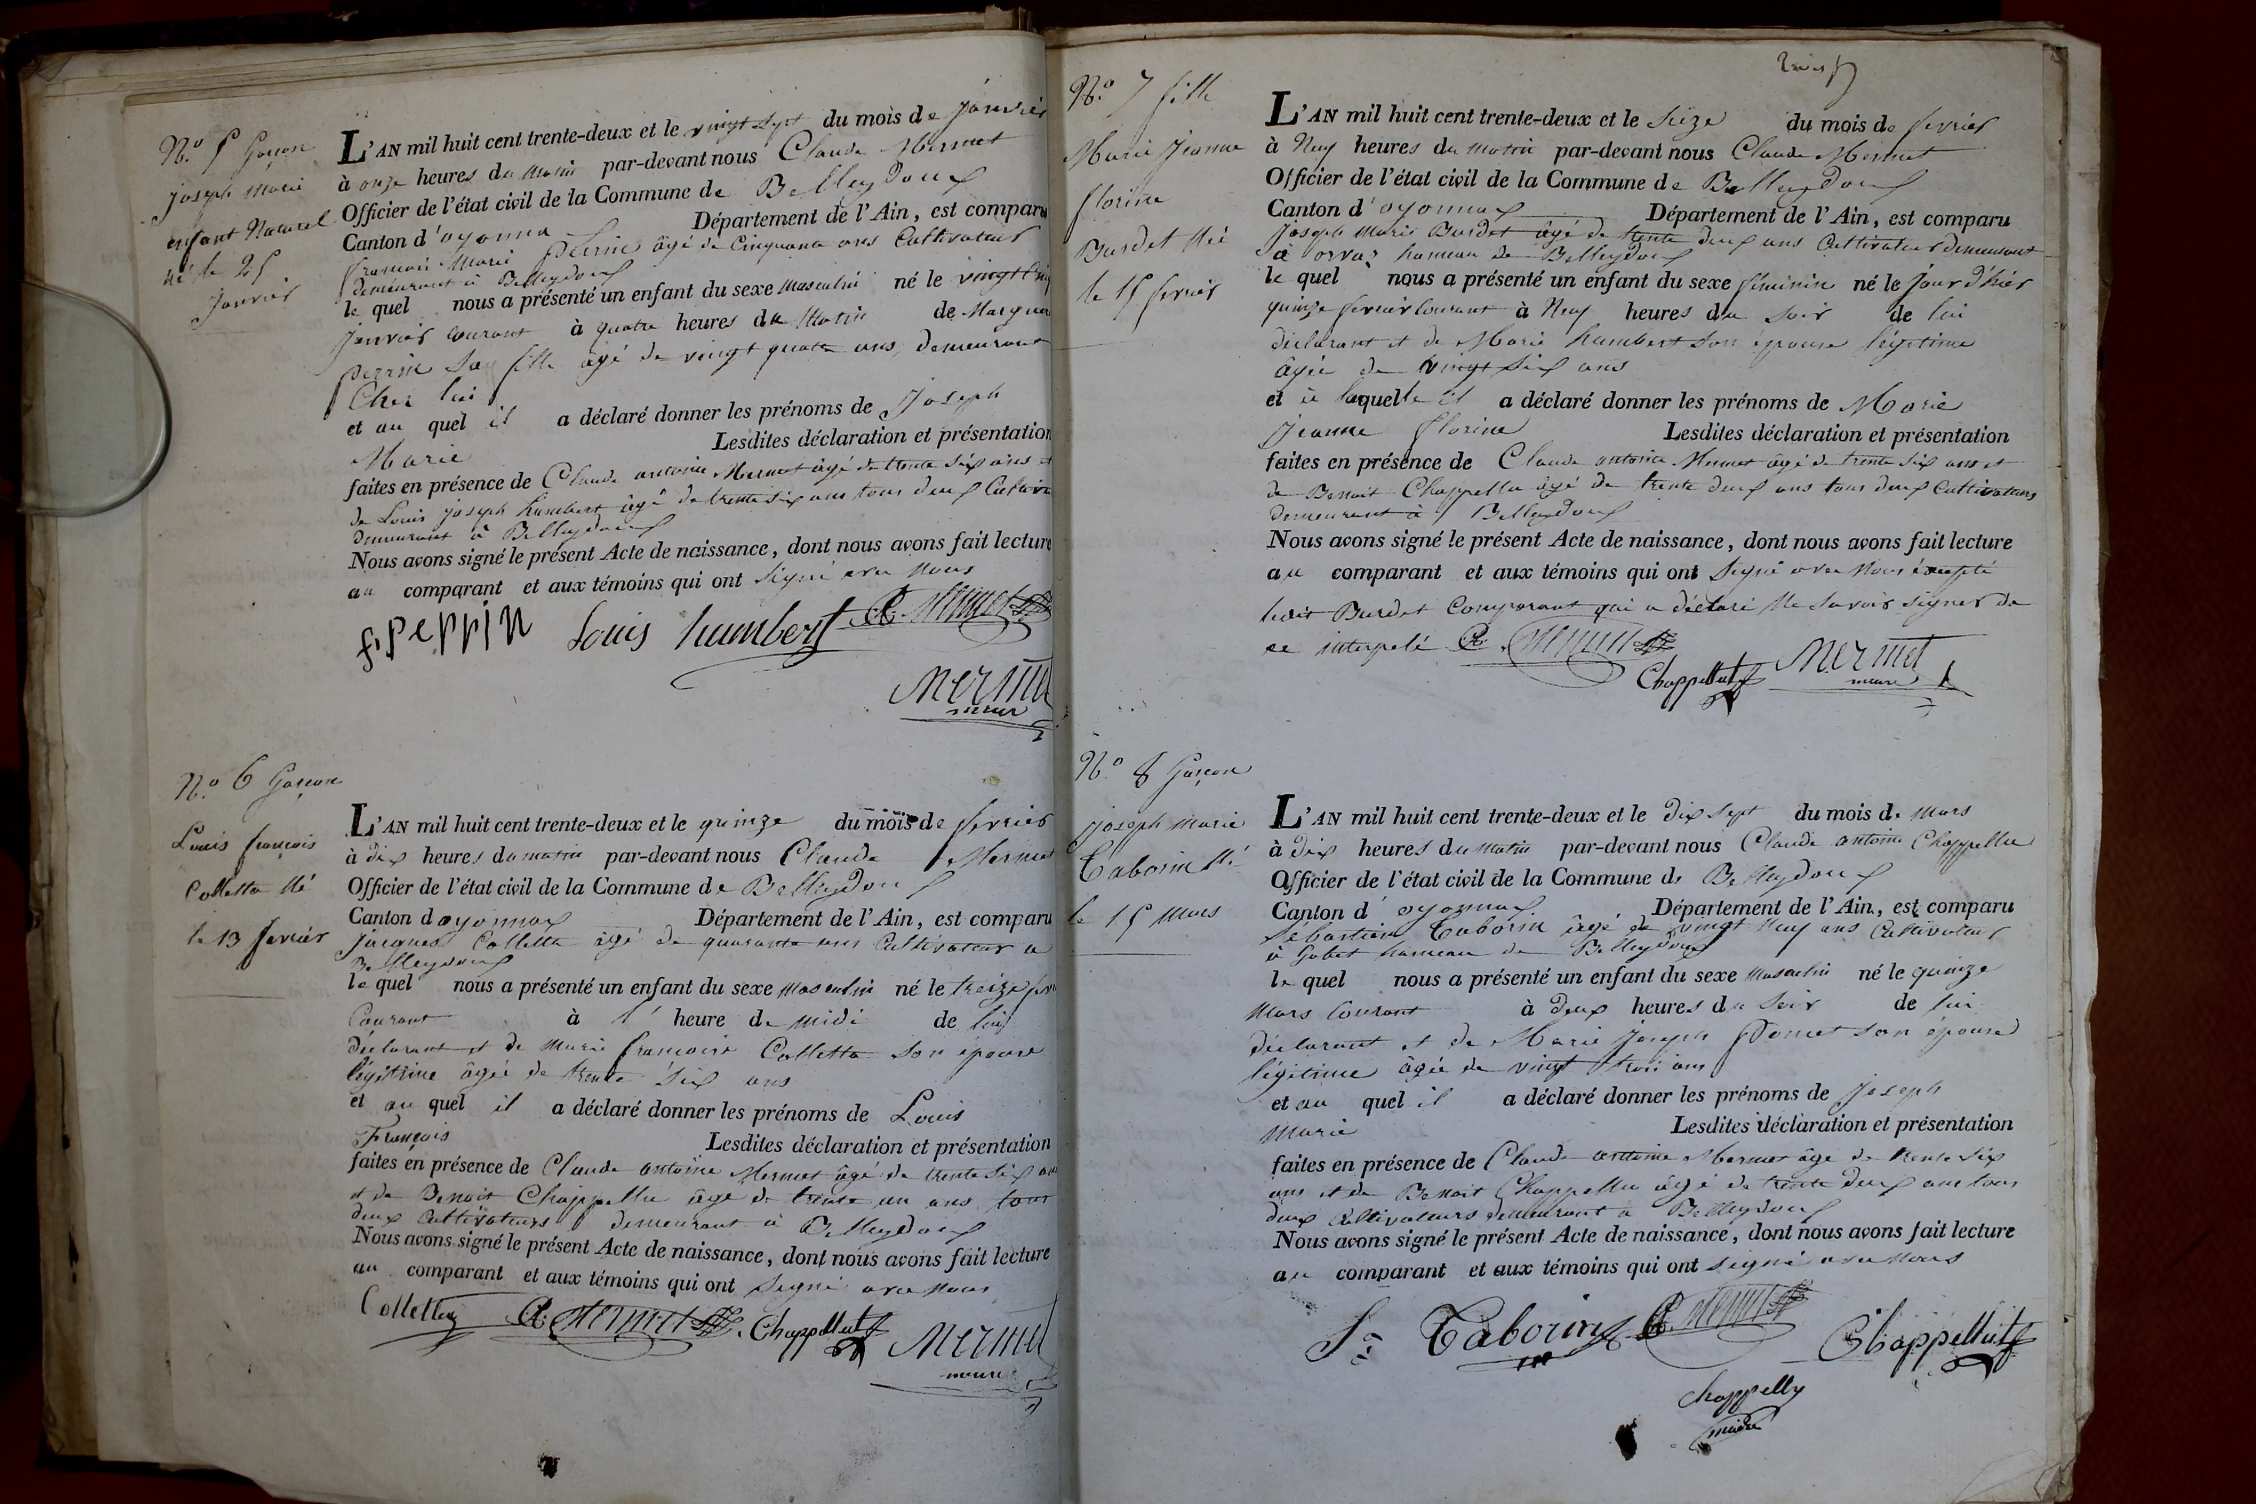 N.o 5 Garçon
Joseph Marie
enfant Naturel
né le 25
Janvier
L'AN mil huit cent trente-deux et le vingt sept du mois de Janvier
à onze heures du matin par-devant nous Claude Mermet
Officier de l'état civil de la Commune de Belleydoux
Canton d'oyonna Département de l'Ain, est comparu
françois Marie Perrin âgé de Cinquante ans Cultivateur
demeurant à Belleydoux
le quel nous a présenté un enfant du sexe masculin né le vingt cinq
janvier courant à quatre heures du Matin de Margue
perrin Sa fille âgé de vingt quatre ans, demeurant
Chez lui
et au quel il a déclaré donner les prénoms de Joseph
Marie Lesdites déclaration et présentation
faites en présence de Claude antoine Mermet âgé de trente six ans et
de Louis joseph humbert âgé de trente six ans tous deux Cultiva
demeurant à Belleydoux
Nous avons signé le présent Acte de naissance, dont nous avons fait lecture
au comparant et aux témoins qui ont signé avec nous
f. perrin Louis humbert CA Mermet
Mermet
maire
N.o 6 Garçon
Louis françois
Colletta Né
le 13 fevrier
L'AN mil huit cent trente-deux et le quinze du mois de fevrier
à dix heures du matin par-devant nous Claude Mermet
Officier de l'état civil de la Commune de Belleydoux
Canton d oyonnax Département de l'Ain, est comparu
jacques Colletta âgé de quarante ans Cultivateur a
Belleydoux
le quel nous a présenté un enfant du sexe masculin né le treize
Courant à l' heure de midi de lui
déclarant et de Marie françoise Colletta son épouse
légitime âgée de trente six ans
et au quel il a déclaré donner les prénoms de Louis
François Lesdites déclaration et présentation
faites en présence de Claude antoine Mermet âgé de trente six ans
et de Benoit Chappellu âgé de trente un ans tous
deux Cultivateurs demeurant à Belleydoux
Nous avons signé le présent Acte de naissance, dont nous avons fait lecture
au comparant et aux témoins qui ont signé avec nous
Collettaz CA Mermet Chappelluz Mermet
maire
N.o 7 fille
Marie Jeanne
florine
Burdet Née
le 15 fevrier
L'AN mil huit cent trente-deux et le Seize du mois de fevrier
à Neuf heures du matin par-devant nous Claude Mermet
Officier de l'état civil de la Commune de Belleydoux
Canton d'oyonnax Département de l'Ain, est comparu
Joseph Marie Burdet âgé de trente deux ans Cultivateur demeurant
à orvaz hameau de Belleydoux
le quel nous a présenté un enfant du sexe féminin né le Jour d'hier
quinze fevrier courant à Neuf heures du Soir de lui
déclarant et de Marie humbert son épouse légitime
âgée de vingt six ans
et à laquelle il a déclaré donner les prénoms de Marie
Jeanne florine Lesdites déclaration et présentation
faites en présence de Claude antoine Mermet âgé de trente six ans et
de Benoit Chappellu âgé de trente deux ans tous deux Cultivateurs
demeurant à Belleydoux
Nous avons signé le présent Acte de naissance, dont nous avons fait lecture
au comparant et aux témoins qui ont signé avec nous excepté
ledit Burdet Comparant qui a déclaré Ne savoir signer de
ce interpelé CA Mermet
Chappelluz Mermet
maire
N.o 8 Garçon
joseph marie
Taborin Né
le 15 Mars
L'AN mil huit cent trente-deux et le dix sept du mois de mars
à dix heures du matin par-devant nous Claude antoine Chappellu
Officier de l'état civil de la Commune de Belleydoux
Canton d'oyonnax Département de l'Ain, est comparu
Sebastien Taborin âgé de vingt Neuf ans Cultivateur
à Gobet hameau de Belleydoux
le quel nous a présenté un enfant du sexe masculin né le quinze
Mars Courant à deux heures du Soir de lui
déclarant et de Marie Joseph Poncet son épouse
légitime âgée de vingt trois ans
et au quel il a déclaré donner les prénoms de joseph
marie Lesdites déclaration et présentation
faites en présence de Claude antoine Mermet âgé de trente six
ans et de Benoit Chappellu âgé de trente deux ans tous
deux Cultivateurs demeurant à Belleydoux
Nous avons signé le présent Acte de naissance, dont nous avons fait lecture
au comparant et aux témoins qui ont signé avec nous
S. Taborin CA Mermet Chappelluz
Chappelluy
maire